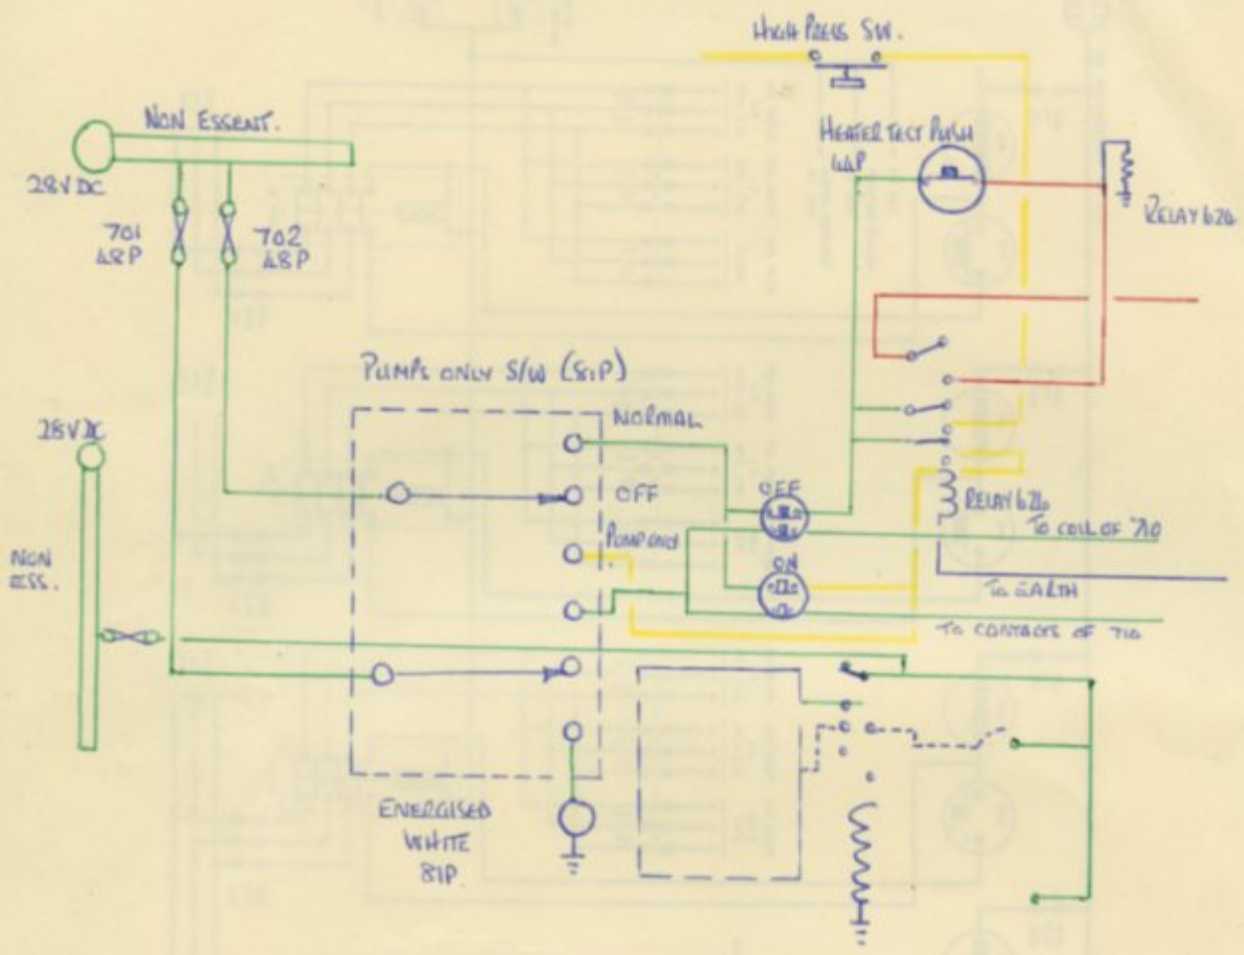 HIGH PRESS SW.
NON ESSENT.
28V DC
701
48P
702
48P
HEATER TEST PUSH
44P
RELAY 626
PUMPS ONLY S/W (81P)
NORMAL
OFF
PUMP ONLY
28V DC
NON
ESS.
OFF
RELAY 626
TO COIL OF 710
ON
TO EARTH
TO CONTACTS OF 710
ENERGISED
WHITE
81P